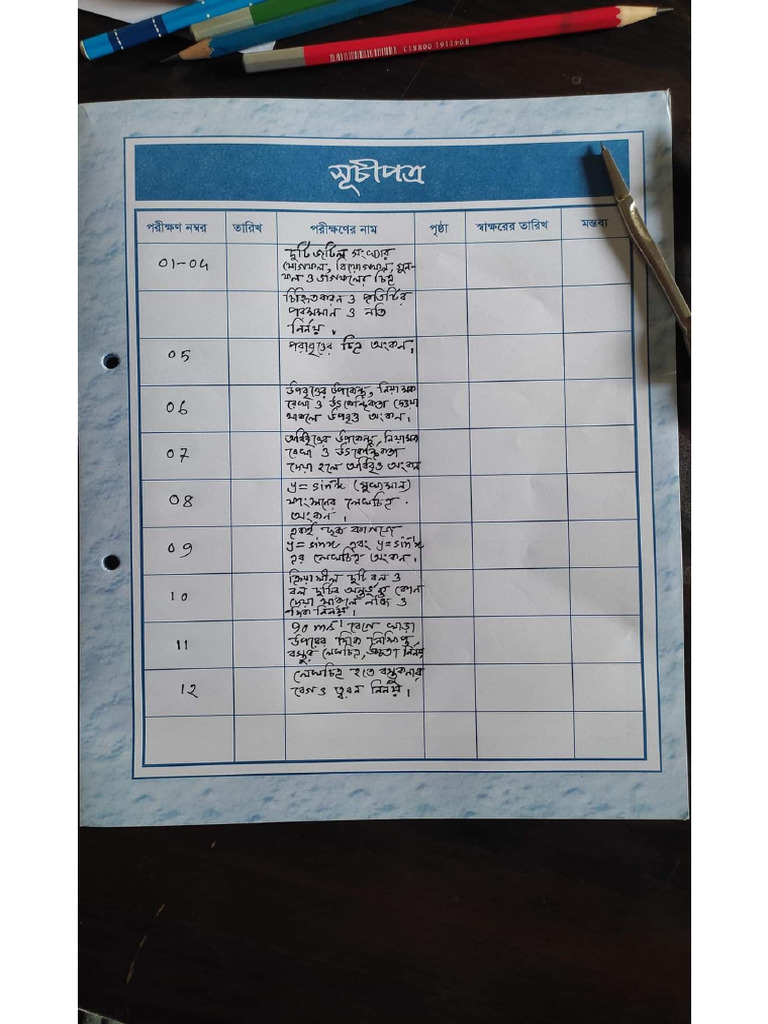 সূচীপত্র
পরীক্ষণ নম্বর তারিখ পরীক্ষণের নাম পৃষ্ঠা স্বাক্ষরের তারিখ মন্তব্য
01-04
দুটি জটিল সংখ্যার
যোগফল, বিয়োগফল, গুন-
ফল ও ভাগফলের চিত্র
চিহ্নিতকরন ও প্রতিটির
পরমমান ও নতি
নির্নয়।
05
পরাবৃত্তের চিত্র অংকন।
06
উপবৃত্তের উপকেন্দ্র, নিয়ামক
রেখা ও উৎকেন্দ্রিকতা দেওয়া
থাকলে উপবৃত্ত অংকন।
07
অধিবৃত্তের উপকেন্দ্র, নিয়ামক
রেখা ও উৎকেন্দ্রিকতা
দেয়া হলে অধিবৃত্ত অংকন
08
y = sin⁻¹x (মুখ্যমান)
ফাংশনের লেখচিত্র
অংকন।
09
একই ছক কাগজে
y = sinx এবং y = sin⁻¹x
এর লেখচিত্র অংকন।
10
ক্রিয়াশীল দুটি বল ও
বল দুটির অন্তর্ভুক্ত কোন
দেয়া থাকলে লব্ধি ও
দিক নির্নয়।
11
90 ms⁻¹ বেগে খাড়া
উপরের দিকে নিক্ষিপ্ত
বস্তুর লেখচিত্র, উচ্চতা নির্নয়
12
লেখচিত্র হতে বস্তুকনার
বেগ ও ত্বরন নির্নয়।